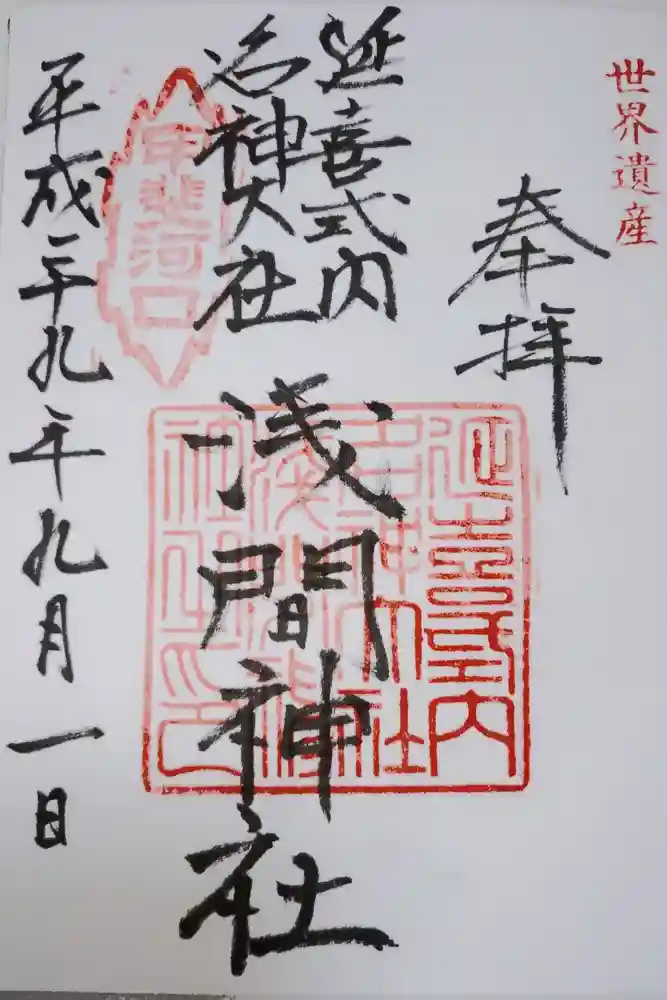 世界遺産
奉拝
延喜式内
名神大社
浅間神社
甲斐河口
延喜式内
名神大社
浅間神
社之印
平成二十九年九月一日